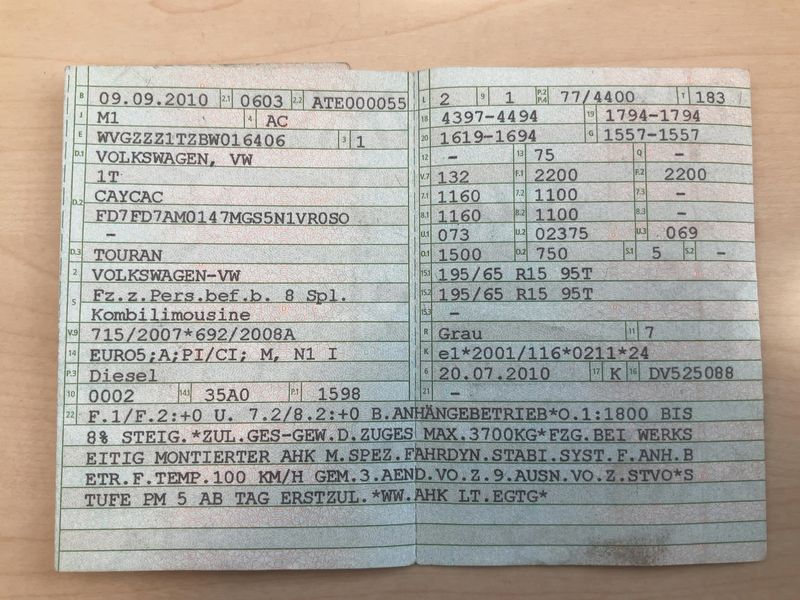 B 09.09.2010 2.1 0603 2.2 ATE000055
J M1 4 AC
E WVGZZZ1TZBW016406 3 1
D.1 VOLKSWAGEN, VW
1T
D.2 CAYCAC
FD7FD7AM0147MGS5N1VR0SO
–
D.3 TOURAN
2 VOLKSWAGEN-VW
5 Fz.z.Pers.bef.b. 8 Spl.
Kombilimousine
V.9 715/2007*692/2008A
14 EURO5;A;PI/CI; M, N1 I
P.3 Diesel
10 0002 14.1 35A0 P.1 1598
L 2 9 1 P.2 P.4 77/4400 T 183
18 4397-4494 19 1794-1794
20 1619-1694 G 1557-1557
12 – 13 75 Q –
V.7 132 F.1 2200 F.2 2200
7.1 1160 7.2 1100 7.3 –
8.1 1160 8.2 1100 8.3 –
U.1 073 U.2 02375 U.3 069
O.1 1500 O.2 750 S.1 5 S.2 –
15.1 195/65 R15 95T
15.2 195/65 R15 95T
15.3 –
R Grau 11 7
K e1*2001/116*0211*24
6 20.07.2010 17 K 16 DV525088
21 –
22 F.1/F.2:+0 U. 7.2/8.2:+0 B.ANHÄNGEBETRIEB*O.1:1800 BIS
8% STEIG.*ZUL.GES-GEW.D.ZUGES MAX.3700KG*FZG.BEI WERKS
EITIG MONTIERTER AHK M.SPEZ.FAHRDYN.STABI.SYST.F.ANH.B
ETR.F.TEMP.100 KM/H GEM.3.AEND.VO.Z.9.AUSN.VO.Z.STVO*S
TUFE PM 5 AB TAG ERSTZUL.*WW.AHK LT.EGTG*